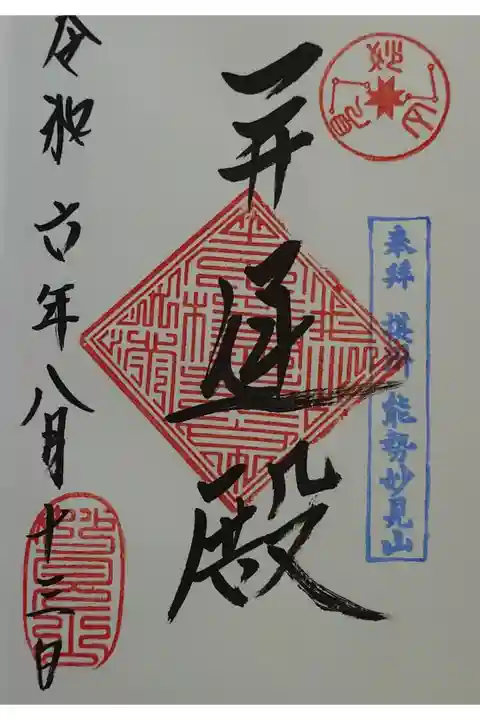 奉拝 摂州 能勢妙見山
開運殿
令和六年八月十三日